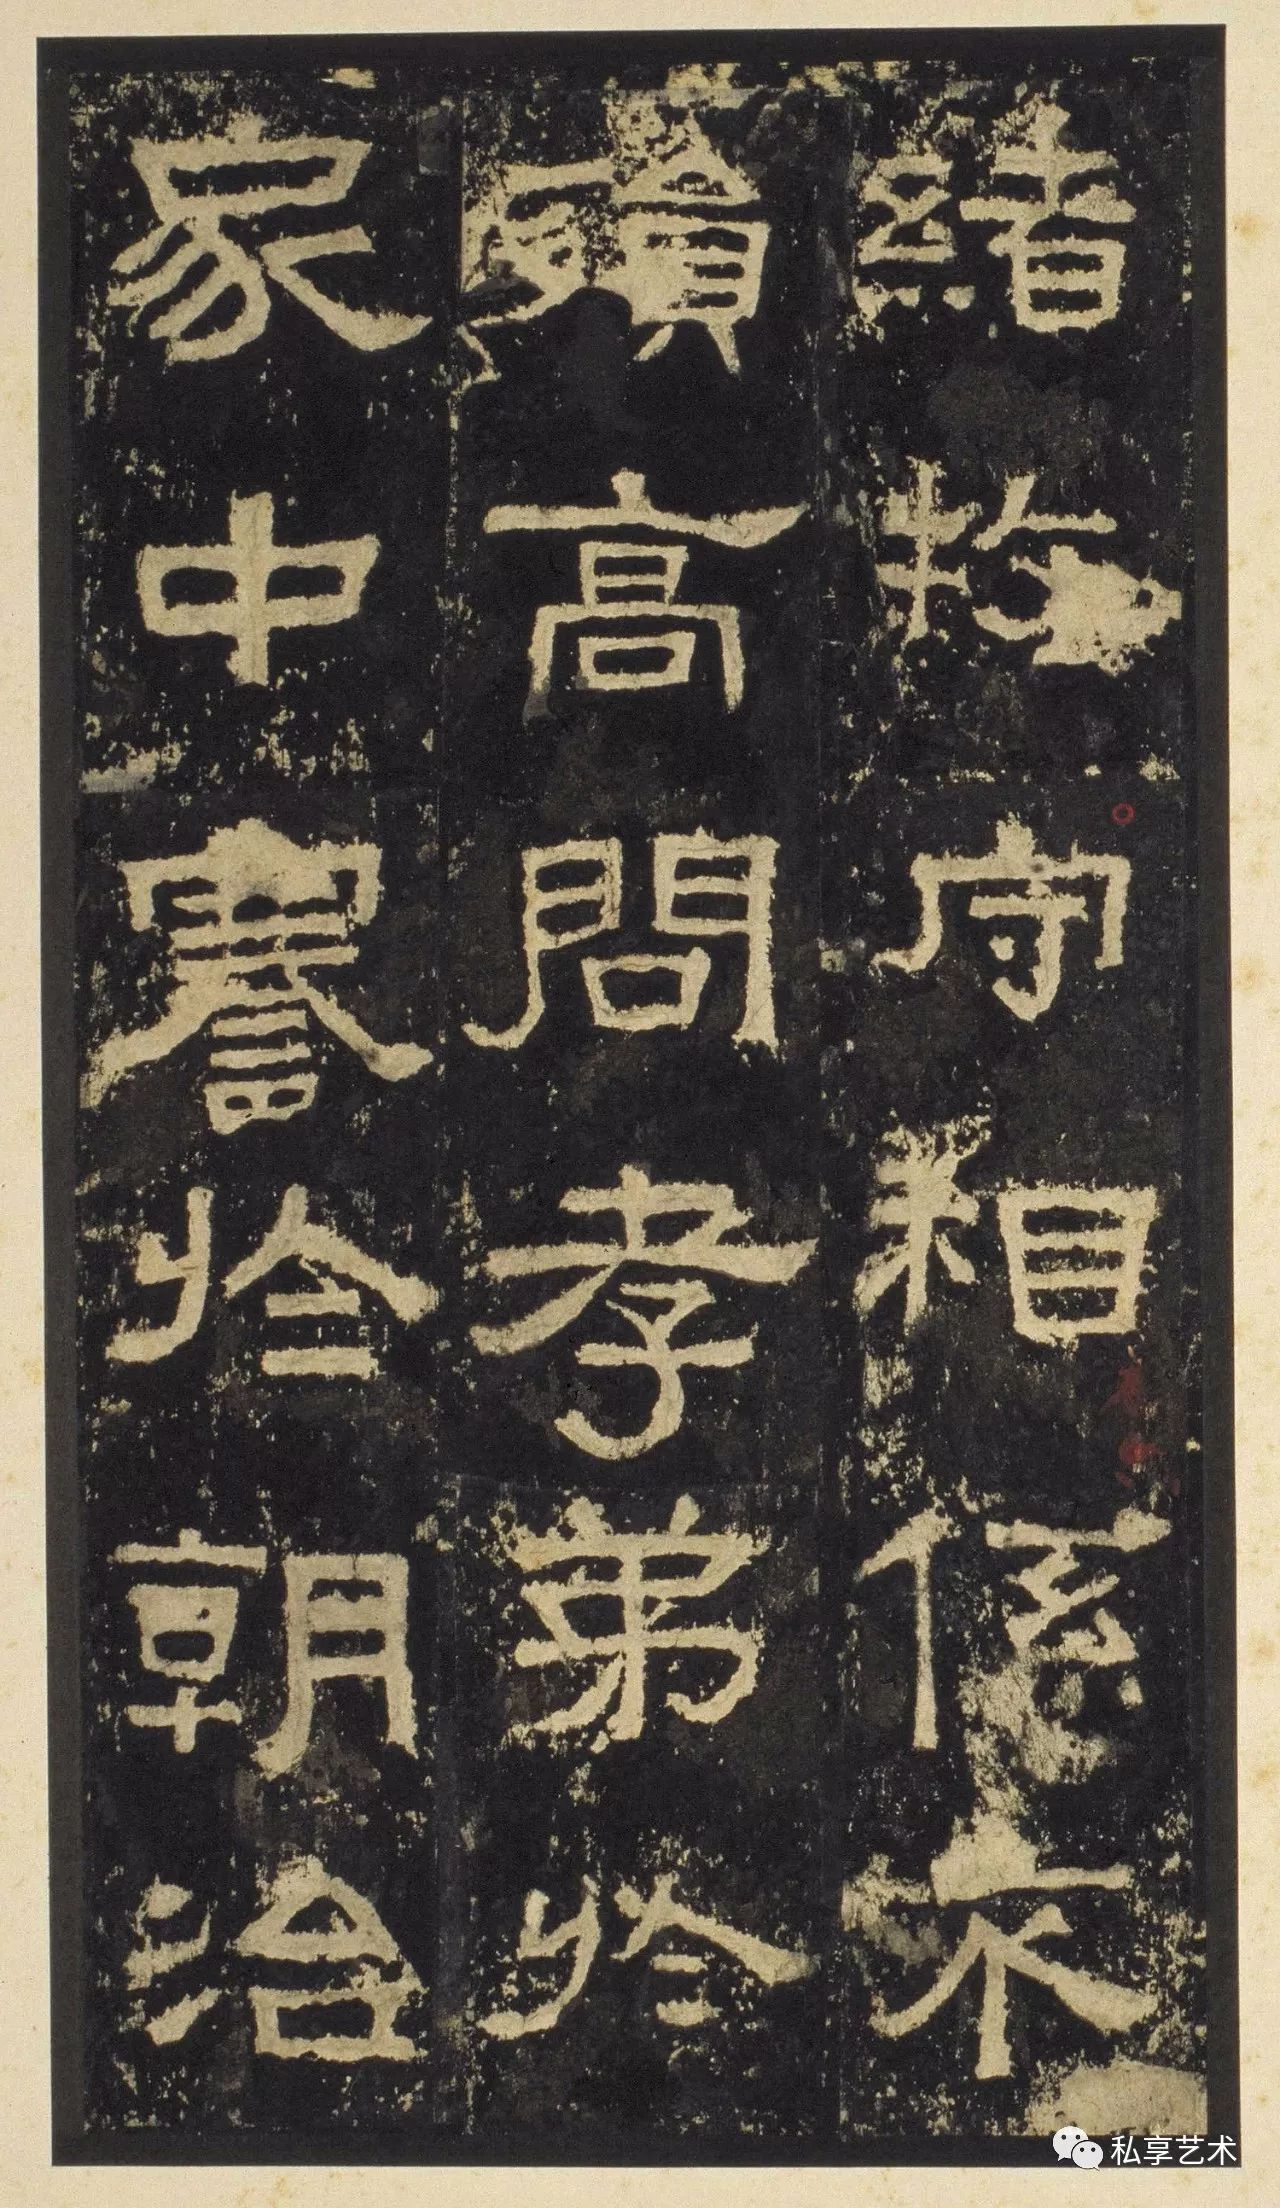 緒牧守相係不
殞高問孝弟於
家中謇於朝治
私享艺术